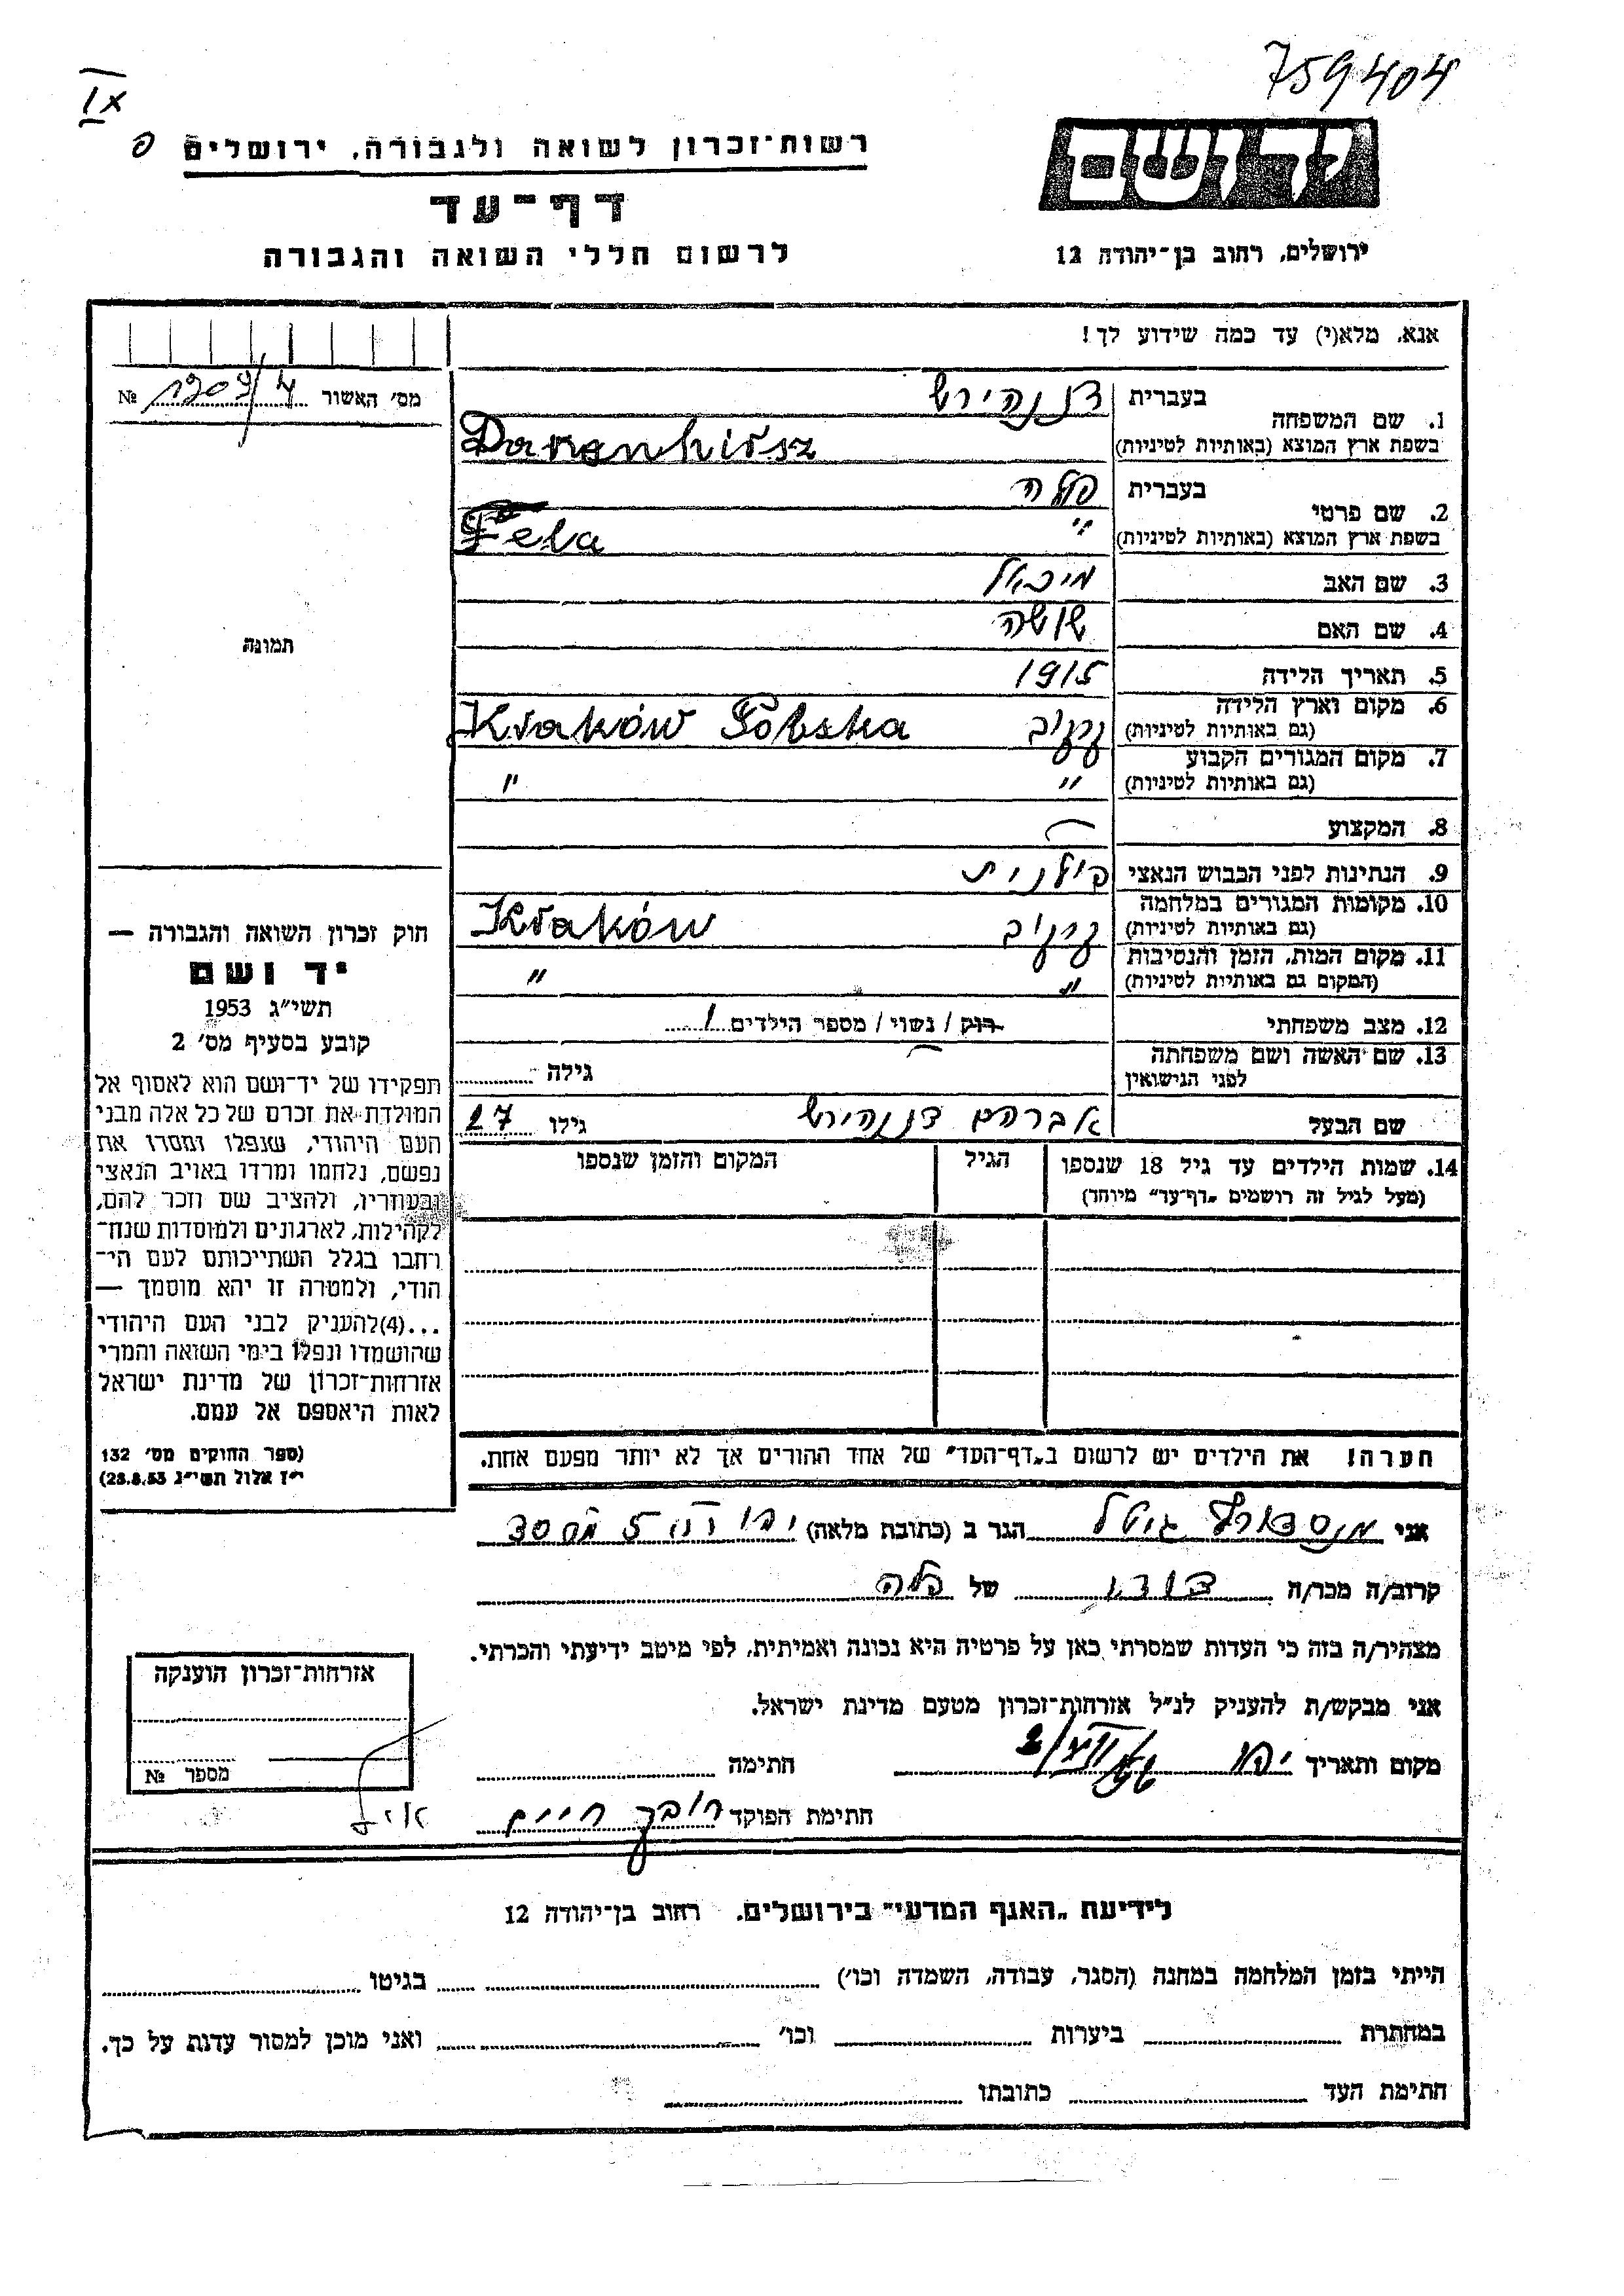 759404
IX
רשות־זכרון לשואה ולגבורה, ירושלים
יד ושם
דף־עד
לרשום חללי השואה והגבורה
ירושלים, רחוב בן־יהודה 12
אנא, מלא(י) עד כמה שידוע לך!
מס׳ האשור 1909/4 №
1. שם המשפחה
בעברית דננהירש
בשפת ארץ המוצא (באותיות לטיניות) Danenhirsz
2. שם פרטי
בעברית פלה
בשפת ארץ המוצא (באותיות לטיניות) Fela
3. שם האב מיכאל
4. שם האם שושה
5. תאריך הלידה 1915
6. מקום וארץ הלידה קרקוב Kraków Polska
(גם באותיות לטיניות)
7. מקום המגורים הקבוע " "
(גם באותיות לטיניות)
8. המקצוע —
9. הנתינות לפני הכבוש הנאצי פולנית
10. מקומות המגורים במלחמה קרקוב Kraków
(גם באותיות לטיניות)
11. מקום המות, הזמן והנסיבות " "
(המקום גם באותיות לטיניות)
12. מצב משפחתי רוק / נשוי / מספר הילדים 1
13. שם האשה ושם משפחתה
לפני הנישואין — גילה
שם הבעל אברהם דננהירש גילו 27
14. שמות הילדים עד גיל 18 שנספו הגיל המקום והזמן שנספו
(מעל לגיל זה רושמים „דף־עד״ מיוחד)
הערה! את הילדים יש לרשום ב„דף־העד״ של אחד ההורים אך לא יותר מפעם אחת.
תמונה
חוק זכרון השואה והגבורה —
יד ושם
תשי״ג 1953
קובע בסעיף מס׳ 2
תפקידו של יד־ושם הוא לאסוף אל
המולדת את זכרם של כל אלה מבני
העם היהודי, שנפלו ומסרו את
נפשם, נלחמו ומרדו באויב הנאצי
ובעוזריו, ולהציב שם וזכר להם,
לקהילות, לארגונים ולמוסדות שנח־
רחבו בגלל השתייכותם לעם הי־
הודי, ולמטרה זו יהא מוסמך —
...(4)להעניק לבני העם היהודי
שהושמדו ונפלו בימי השואה והמרי
אזרחות־זכרון של מדינת ישראל
לאות היאספם אל עמם.
(ספר החוקים מס׳ 132
י״ז אלול תשי״ג 28.8.53)
אני גיטל הגר ב (כתובת מלאה) יפו
קרוב/ה מכר/ה של פלה
מצהיר/ה בזה כי העדות שמסרתי כאן על פרטיה היא נכונה ואמיתית, לפי מיטב ידיעתי והכרתי.
אני מבקש/ת להעניק לנ״ל אזרחות־זכרון מטעם מדינת ישראל.
מקום ותאריך יפו חתימה
חתימת הפוקד חיים
אזרחות־זכרון הוענקה
מספר №
לידיעת „האגף המדעי״ בירושלים, רחוב בן־יהודה 12
הייתי בזמן המלחמה במחנה (הסגר, עבודה, השמדה וכו׳) בגיטו
במחתרת ביערות וכו׳ ואני מוכן למסור עדות על כך.
חתימת העד כתובתו